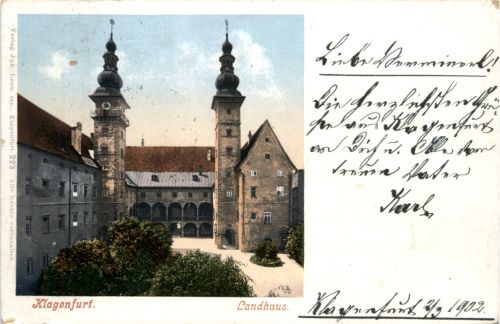 Verlag Joh. Leon sen., Klagenfurt 223 Alle Rechte vorbehalten.
Klagenfurt.
Landhaus.
Liebe
Die herzlichsten Grü-
ße aus Klagenfurt
an Dich u. Alle von
Deinem Vater
Karl
Klagenfurt 2/9 1902.